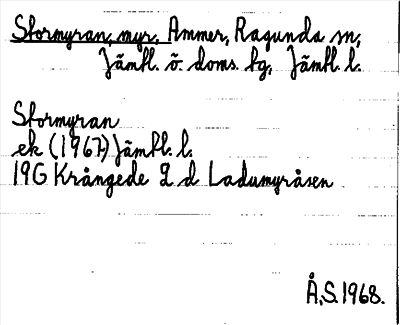 Stormyran, myr, Ammer, Ragunda sn,
Jämtl. ö. doms. hg, Jämtl. l.
Stormyran
ek (1967) Jämtl. l.
19G Krångede 9 d Ladumyråsen
Å.S. 1968.